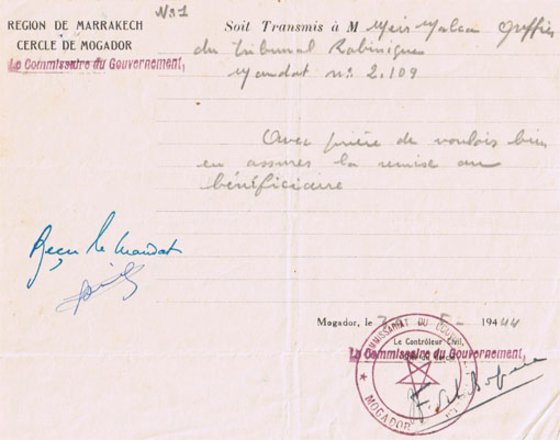 N31
REGION DE MARRAKECH
CERCLE DE MOGADOR
Le Commissaire du Gouvernement,
Soit Transmis à M Meir Malca Greffier
du Tribunal Rabinique
Mandat n° 2.109
Avec prière de vouloir bien
en assurer la remise au
bénéficiaire
Reçu le mandat
Mogador, le 194 44
Le Contrôleur Civil,
Le Commissaire du Gouvernement,
COMMISSARIAT DU GOUVERNEMENT
MOGADOR